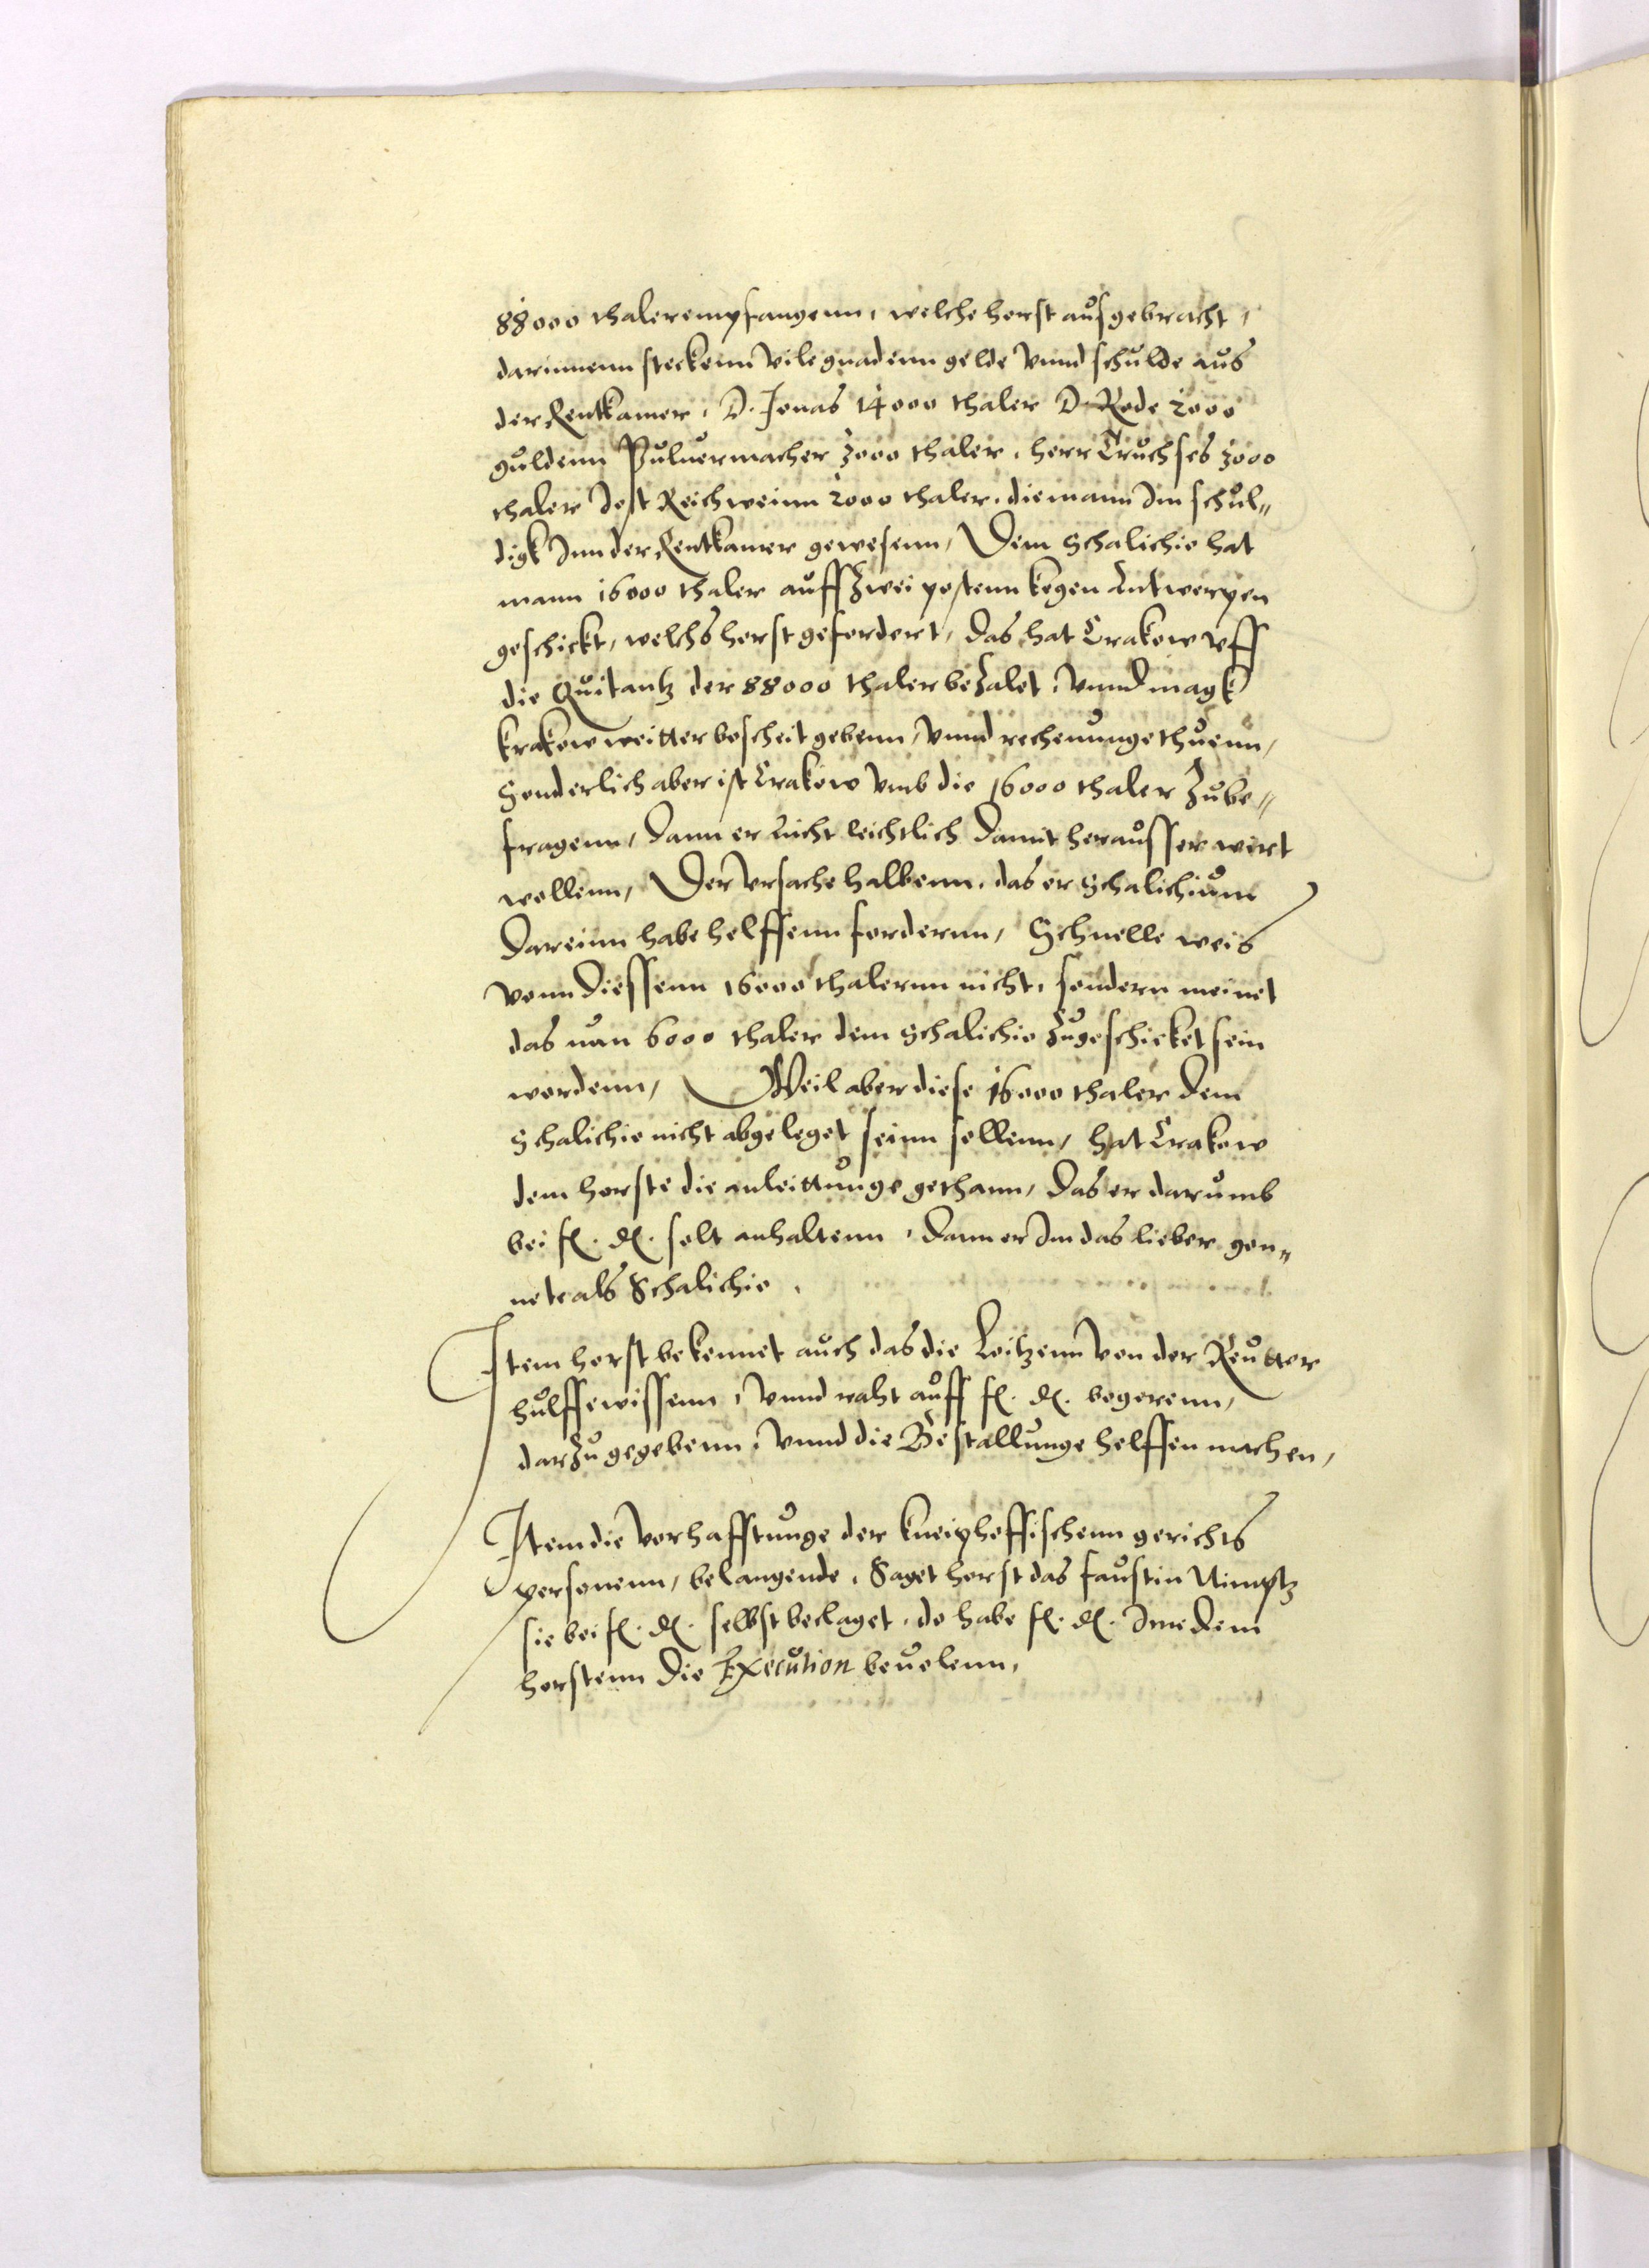 88000 thaler empfangenn, welche horst ausgebracht,
darinnenn steckenn vile gnadenn gelde vnnd schulde aus
der Rentkamer, D. Jonas 14000 thaler D. Rode 2000
guldenn Puluermacher 3000 thaler, herr Truchses 3000
thaler Jost Reichweinn 2000 thaler, die mann Im schul„
digk Inn der Rentkamer gewesenn, Dem Schalichio hat
mann 16000 thaler auff zwei postenn kegen Antwerpen
geschickt, welchs horst gefordert, das hat Crakow vff
die Quitantz der 88000 thaler bezalet, vnnd magk
krakow weitter bescheit gebenn, vnnd rechenunge thuenn,
Sonderlich aber ist Crakow vmb die 16000 thaler zube„
fragenn, dann er nicht leichtlich damit herausser wirt
wollenn, Der vrsache halbenn, das er Schalichium
dareinn habe helffenn fordernn, Schnelle weis
vonn diessenn 16000 thalernn nicht, sondern meinet
das nun 6000 thaler dem Schalichio zugeschicket sein
wordenn, Weil aber diese 16000 thaler dem
Schalichio nicht abgeleget seinn sollenn, hat Crakow
dem horste die anleittunge gethann, das er darumb
bei fl. dl. solt anhaltenn, dann er Im das lieber gon„
nete als Schalichio.
Item horst bekennet auch das die Loitzenn von der Reutter
hulffe wissenn, vnnd raht auff fl. dl. begerenn,
darzu gegebenn, vnnd die Bestallunge helffen machen,
Item die vorhafftunge der kneiphoffischenn gerichts
personenn, belangende, Saget horst das faustin Nimptz
sie bei fl. dl. selbst beclaget, do habe fl. dl. Ime dem
horstenn die Execution beuolenn,